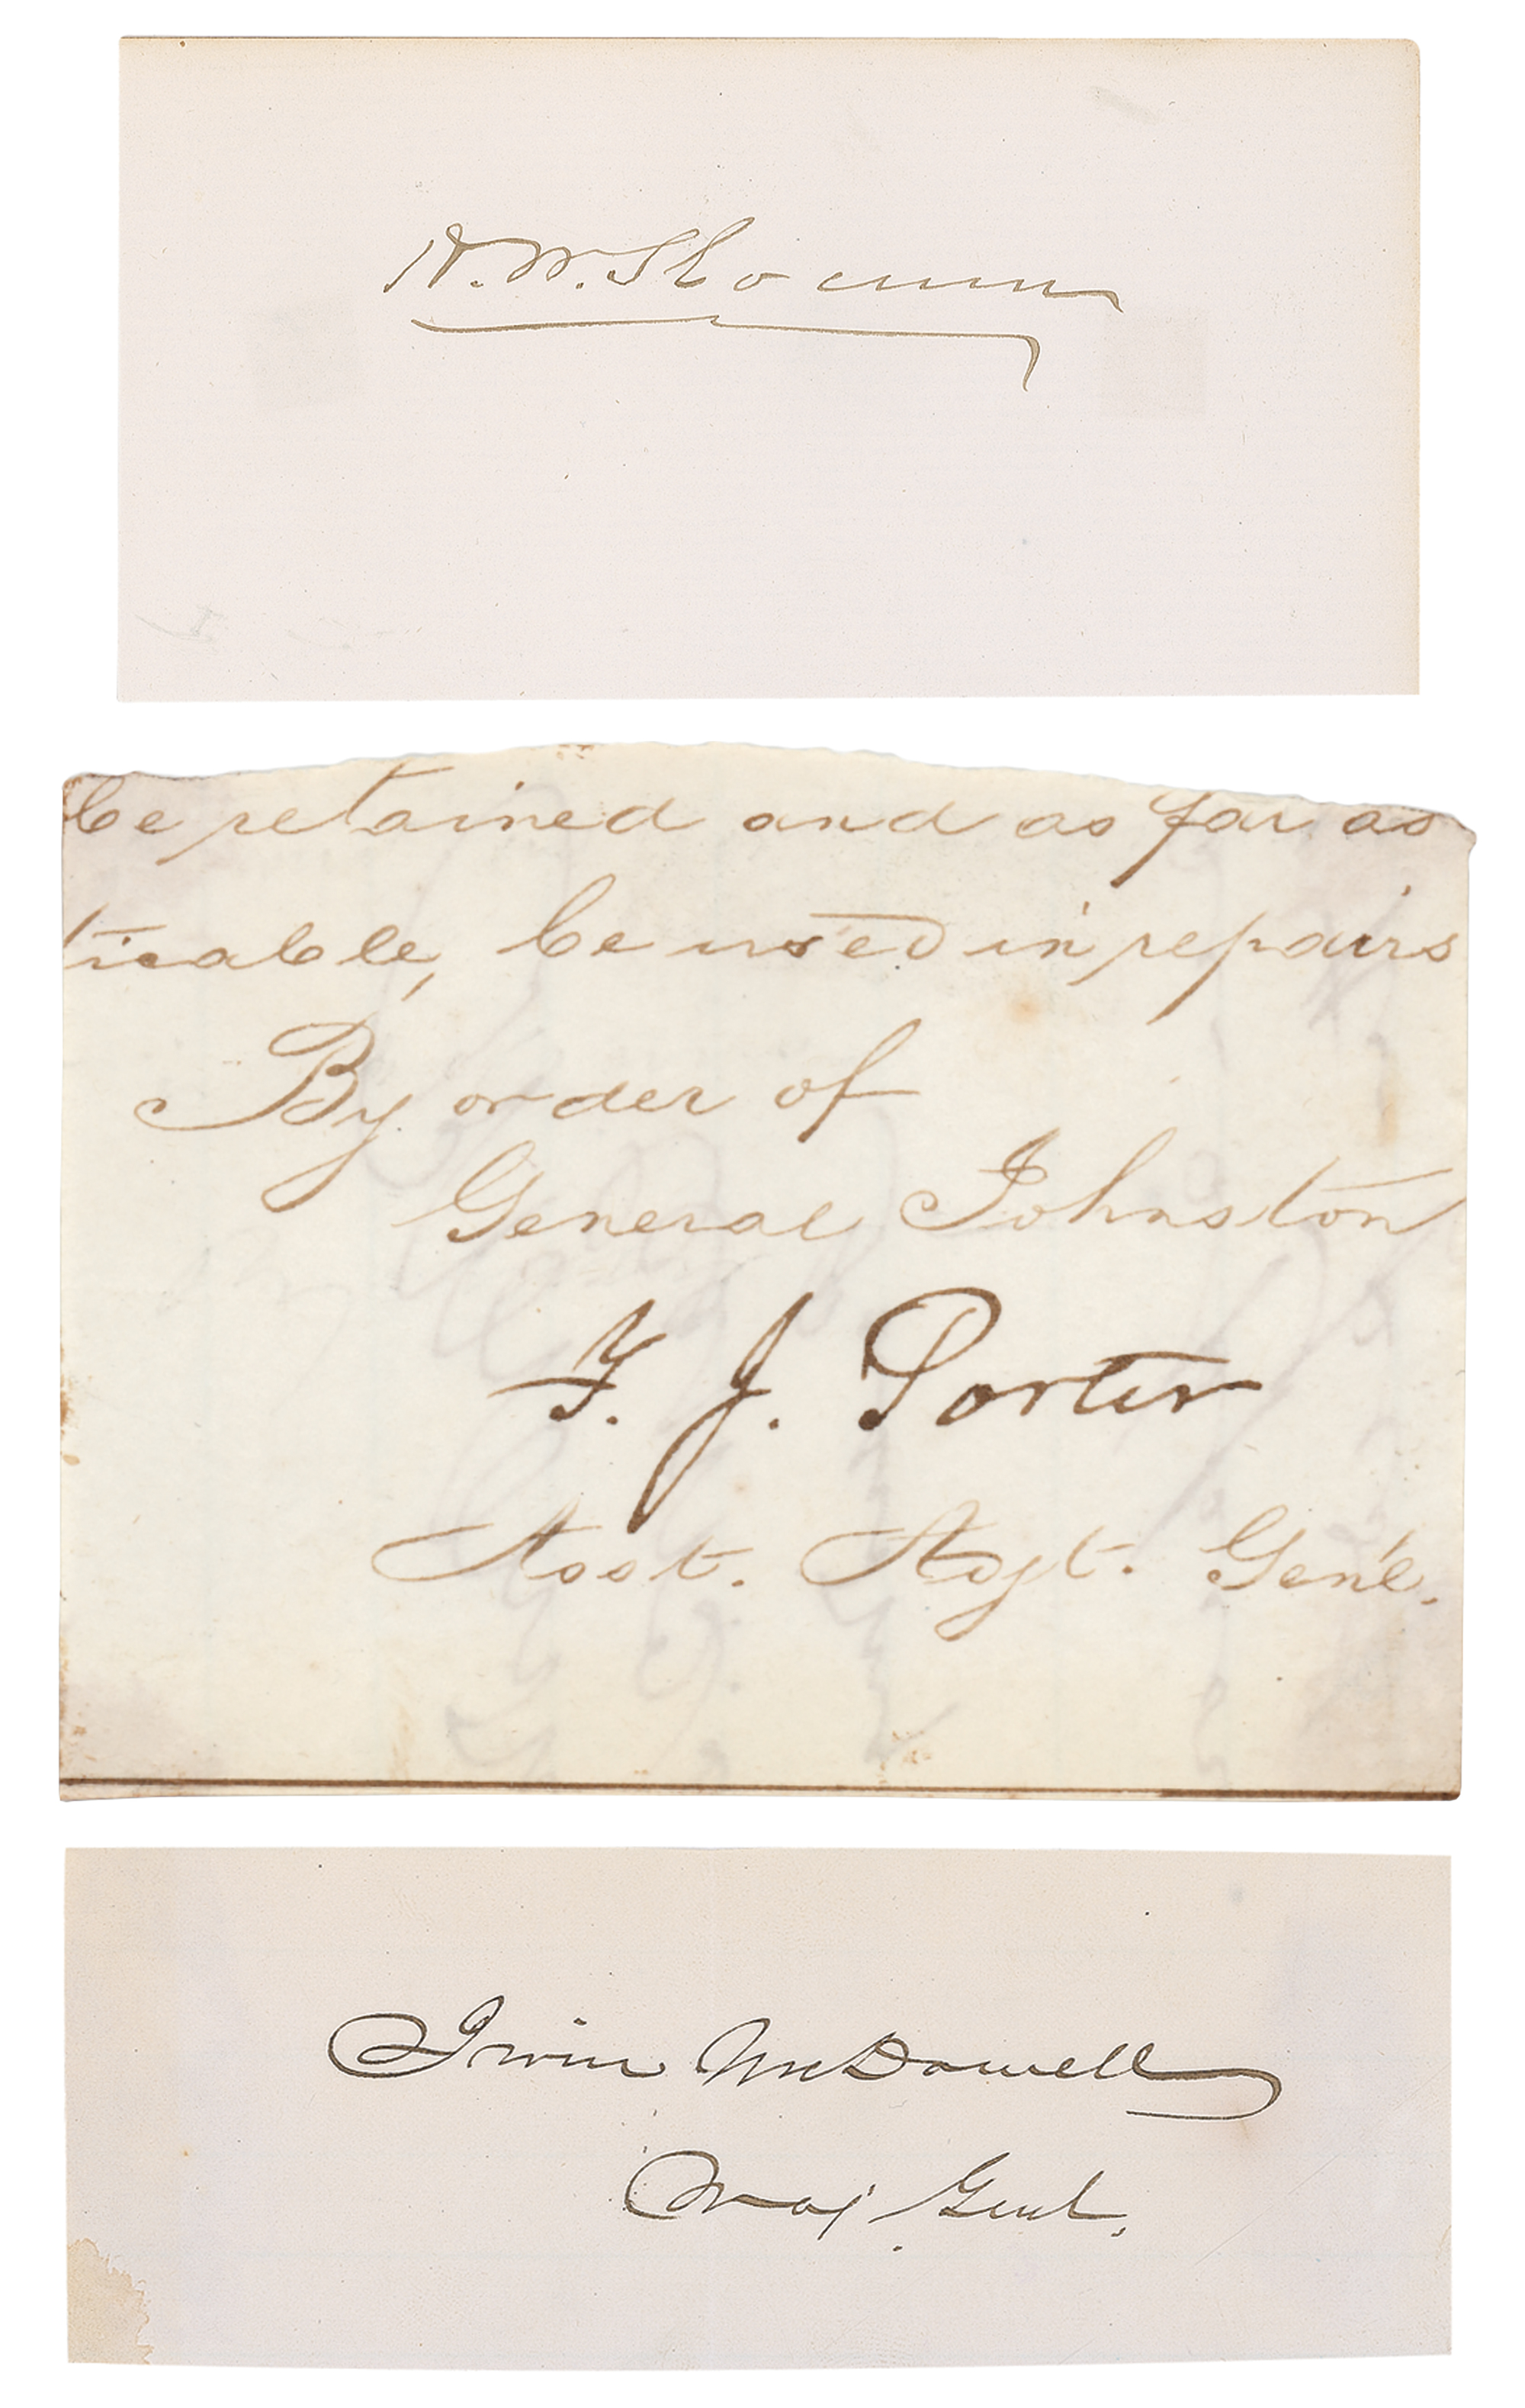 H. W. Slocum
be retained and as far as
ticable, be used in repairs
By order of
General Johnston
F. J. Porter
Asst. Adjt. Genl.
Irvin McDowell
Maj. Genl.